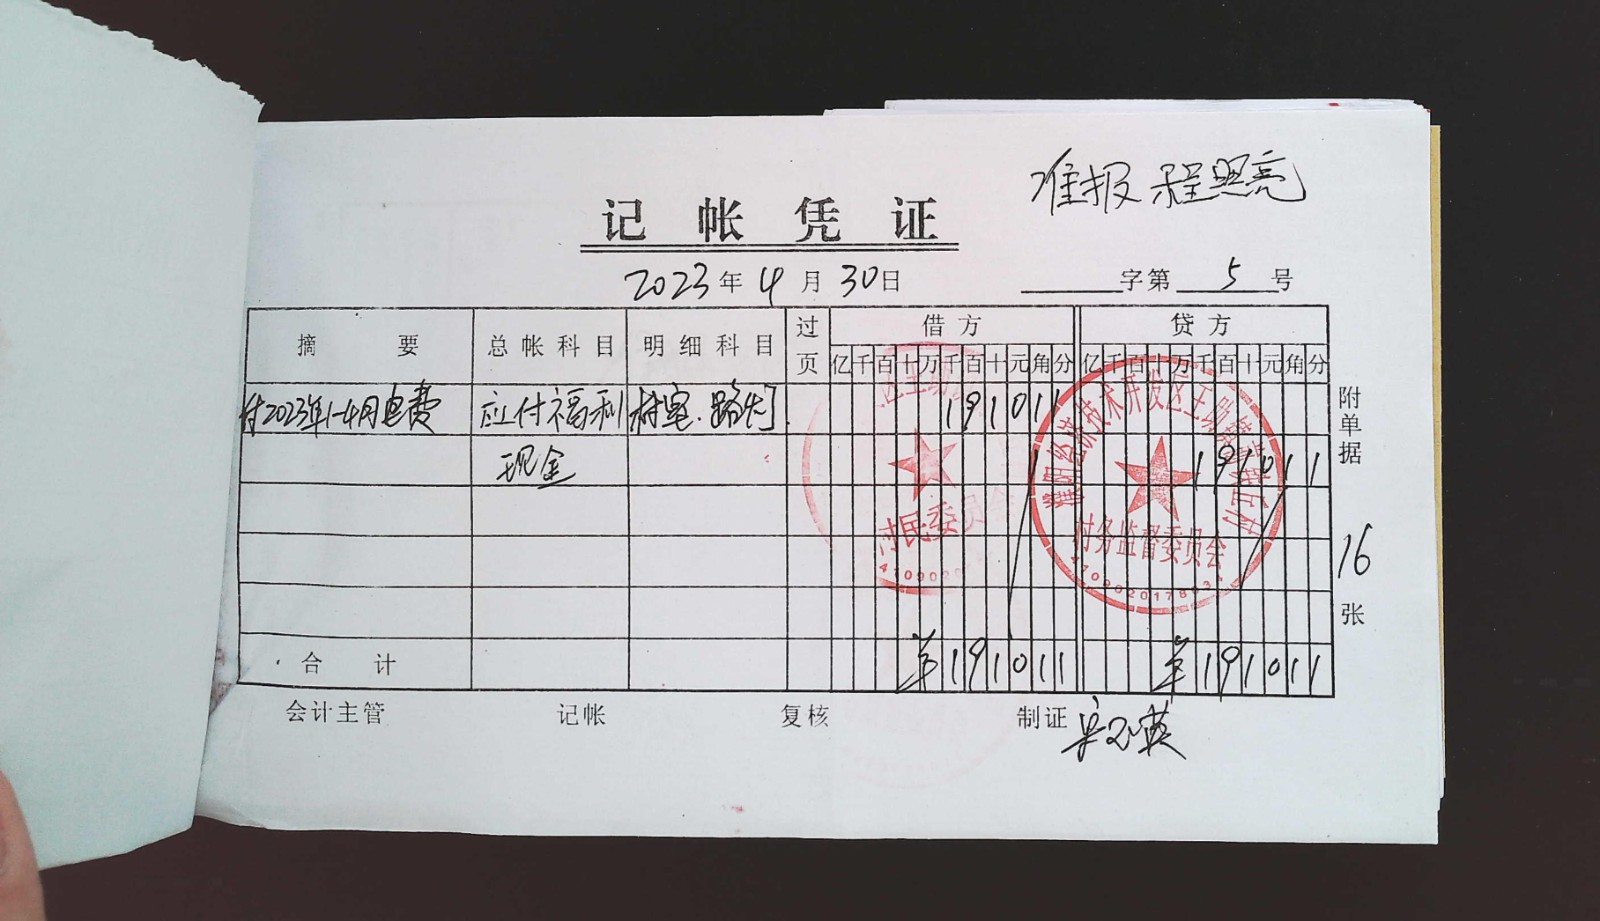 准报 程照亮
记帐凭证
2023年4月30日 字第5号
摘要 总帐科目 明细科目 过页 借方 贷方
亿千百十万千百十元角分 亿千百十万千百十元角分
付2023年1-4月电费 应付福利 村室.路灯 191011
现金 191011
合计 ¥191011 ¥191011
附单据 16 张
会计主管 记帐 复核 制证
村民委员会
濮阳经济技术开发区王助镇
村务监督委员会